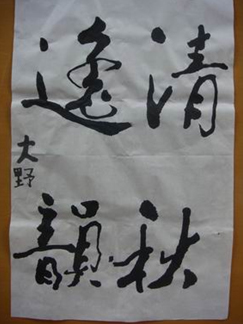 清秋
遙韻
大野